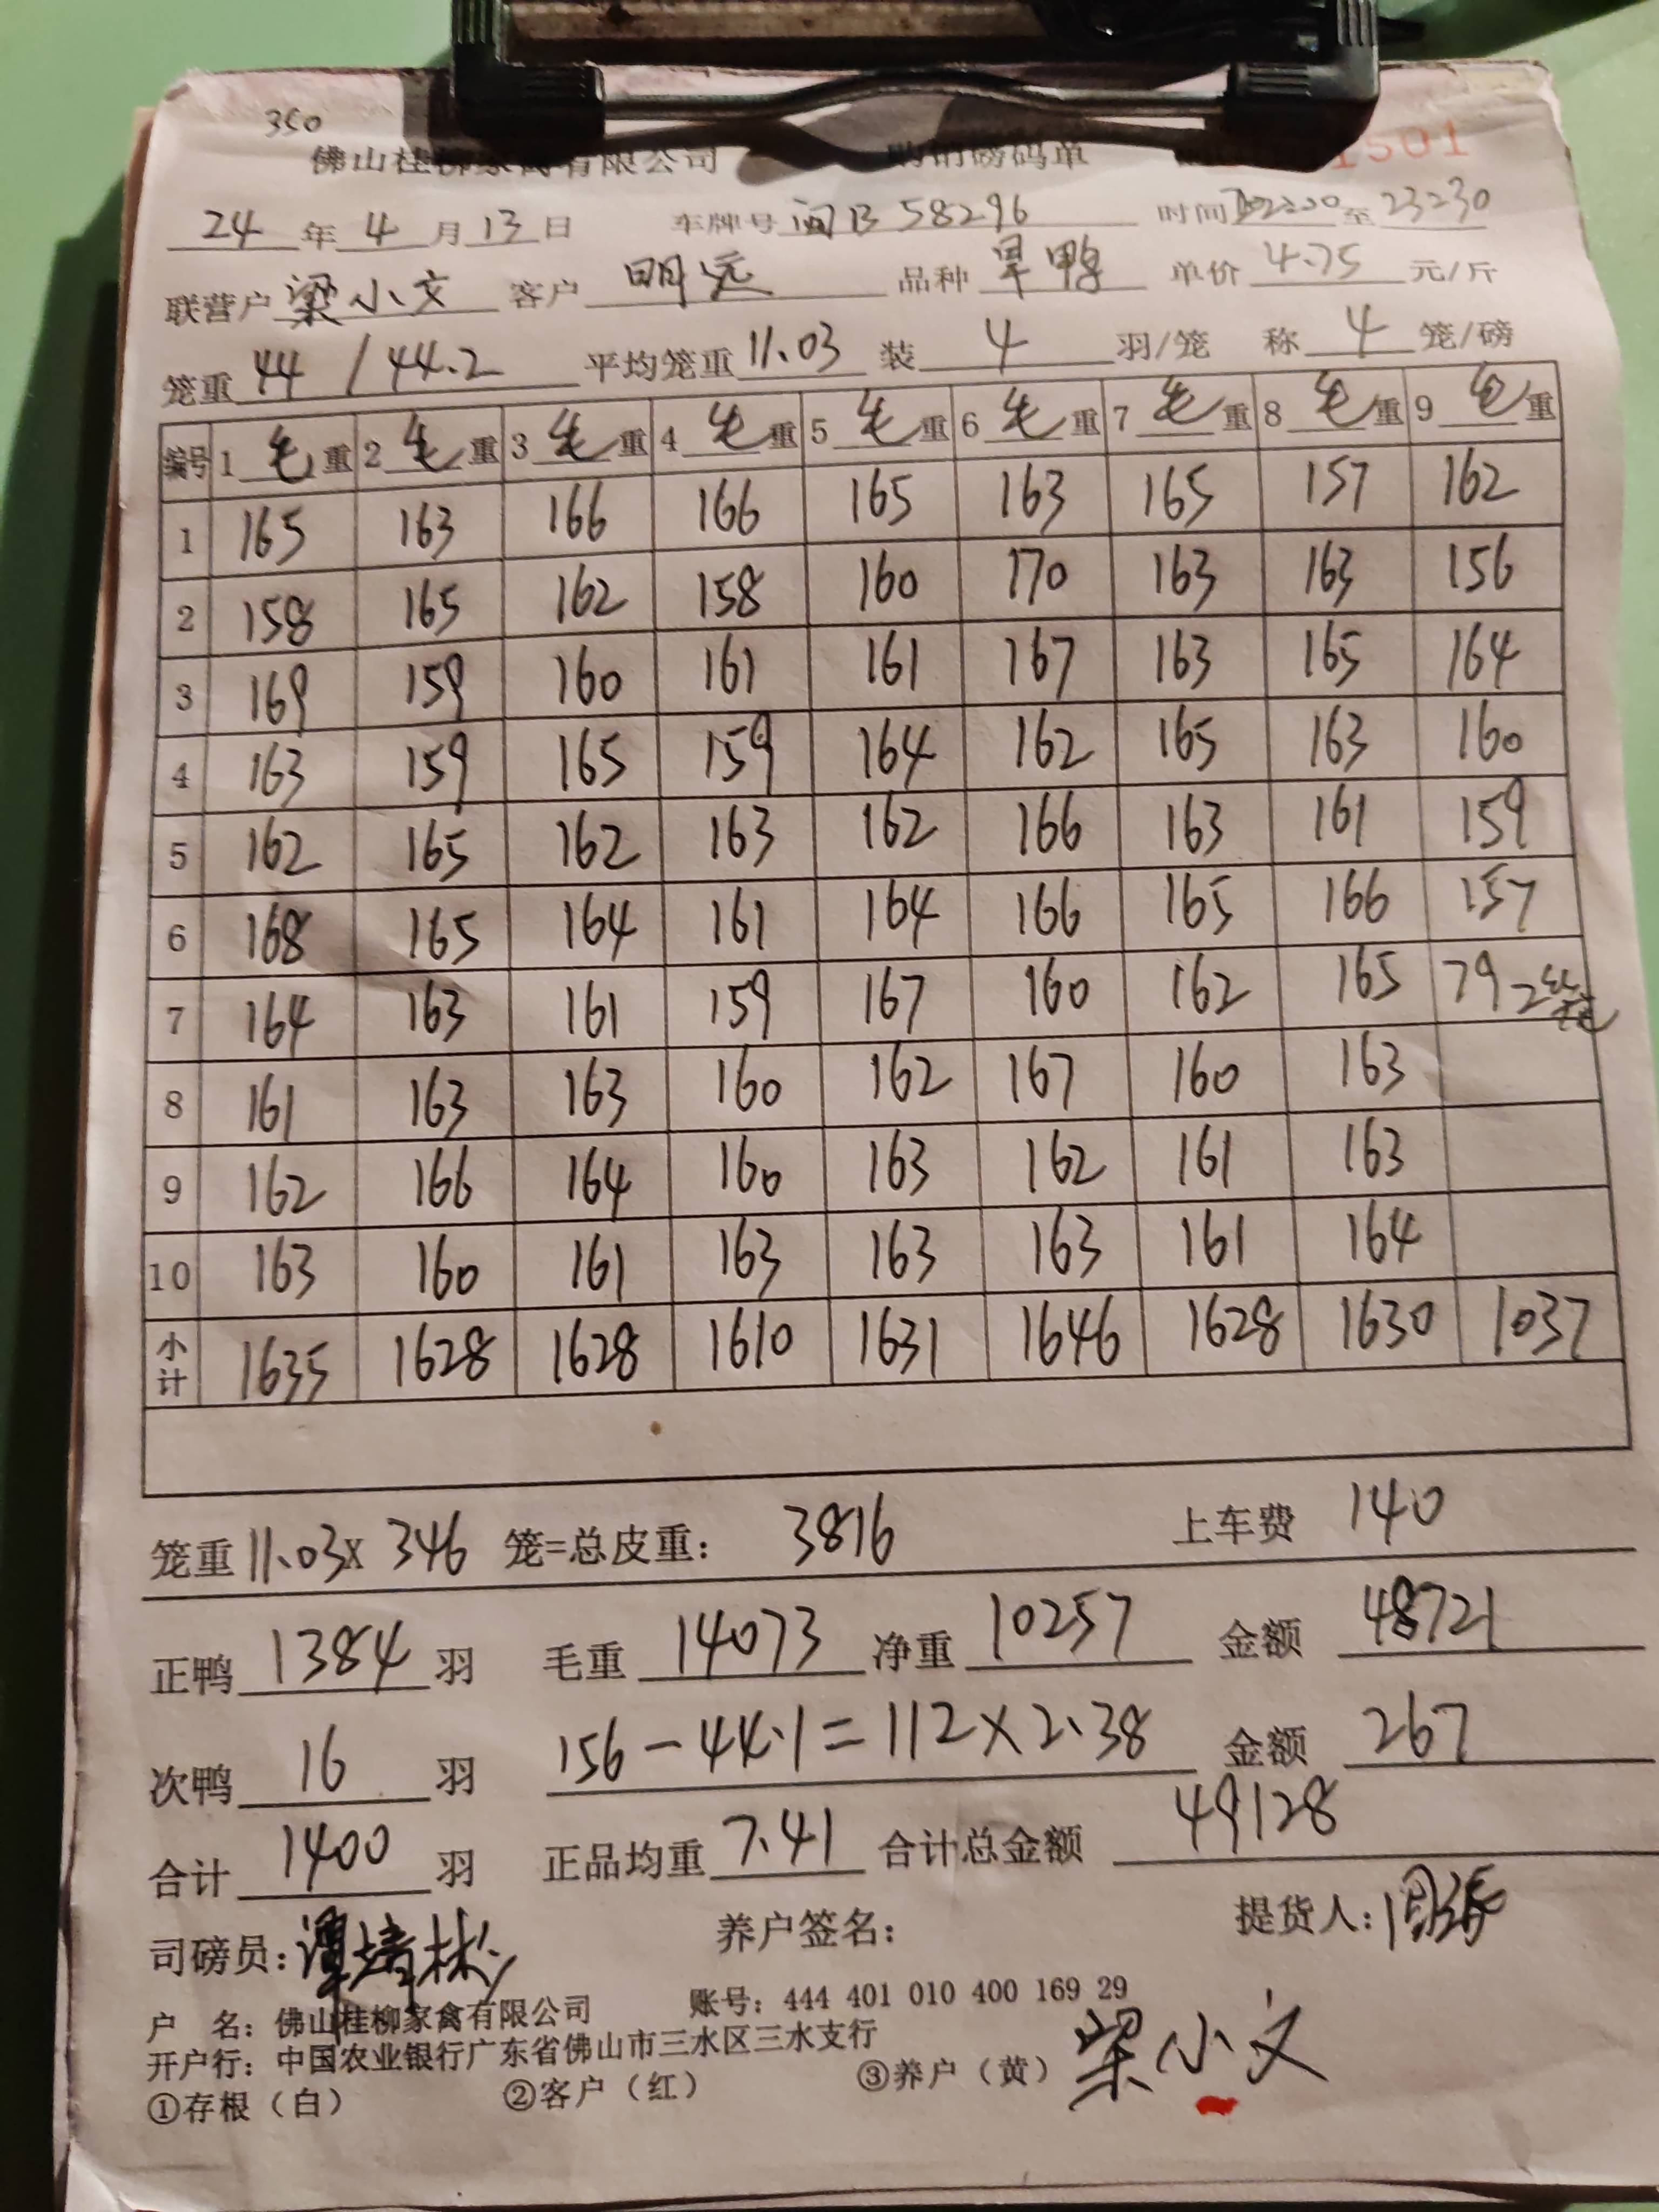 350
佛山桂柳家禽有限公司 购销磅码单 1501
24年4月13日 车牌号 闽B58296 时间 22:00至23:30
联营户 梁小文 客户 明远 品种 旱鸭 单价 4.75 元/斤
笼重 44 / 44.2 平均笼重 11.03 装 4 羽/笼 称 4 笼/磅
编号 1 毛 重 2 毛 重 3 毛 重 4 毛 重 5 毛 重 6 毛 重 7 毛 重 8 毛 重 9 毛 重
1 165 163 166 166 165 163 165 157 162
2 158 165 162 158 160 170 163 163 156
3 169 159 160 161 161 167 163 165 164
4 163 159 165 159 164 162 165 163 160
5 162 165 162 163 162 166 163 161 159
6 168 165 164 161 164 166 165 166 157
7 164 163 161 159 167 160 162 165 79 2笼
8 161 163 163 160 162 167 160 163
9 162 166 164 160 163 162 161 163
10 163 160 161 163 163 163 161 164
小计 1635 1628 1628 1610 1631 1646 1628 1630 1037
笼重 11.03 X 346 笼=总皮重： 3816 上车费 140
正鸭 1384 羽 毛重 14073 净重 10257 金额 48721
次鸭 16 羽 156-44.1=112×2.38 金额 267
合计 1400 羽 正品均重 7.41 合计总金额 49128
司磅员： 养户签名： 提货人：
户 名：佛山桂柳家禽有限公司 账号：444 401 010 400 169 29
开户行：中国农业银行广东省佛山市三水区三水支行
①存根（白） ②客户（红） ③养户（黄） 梁小文